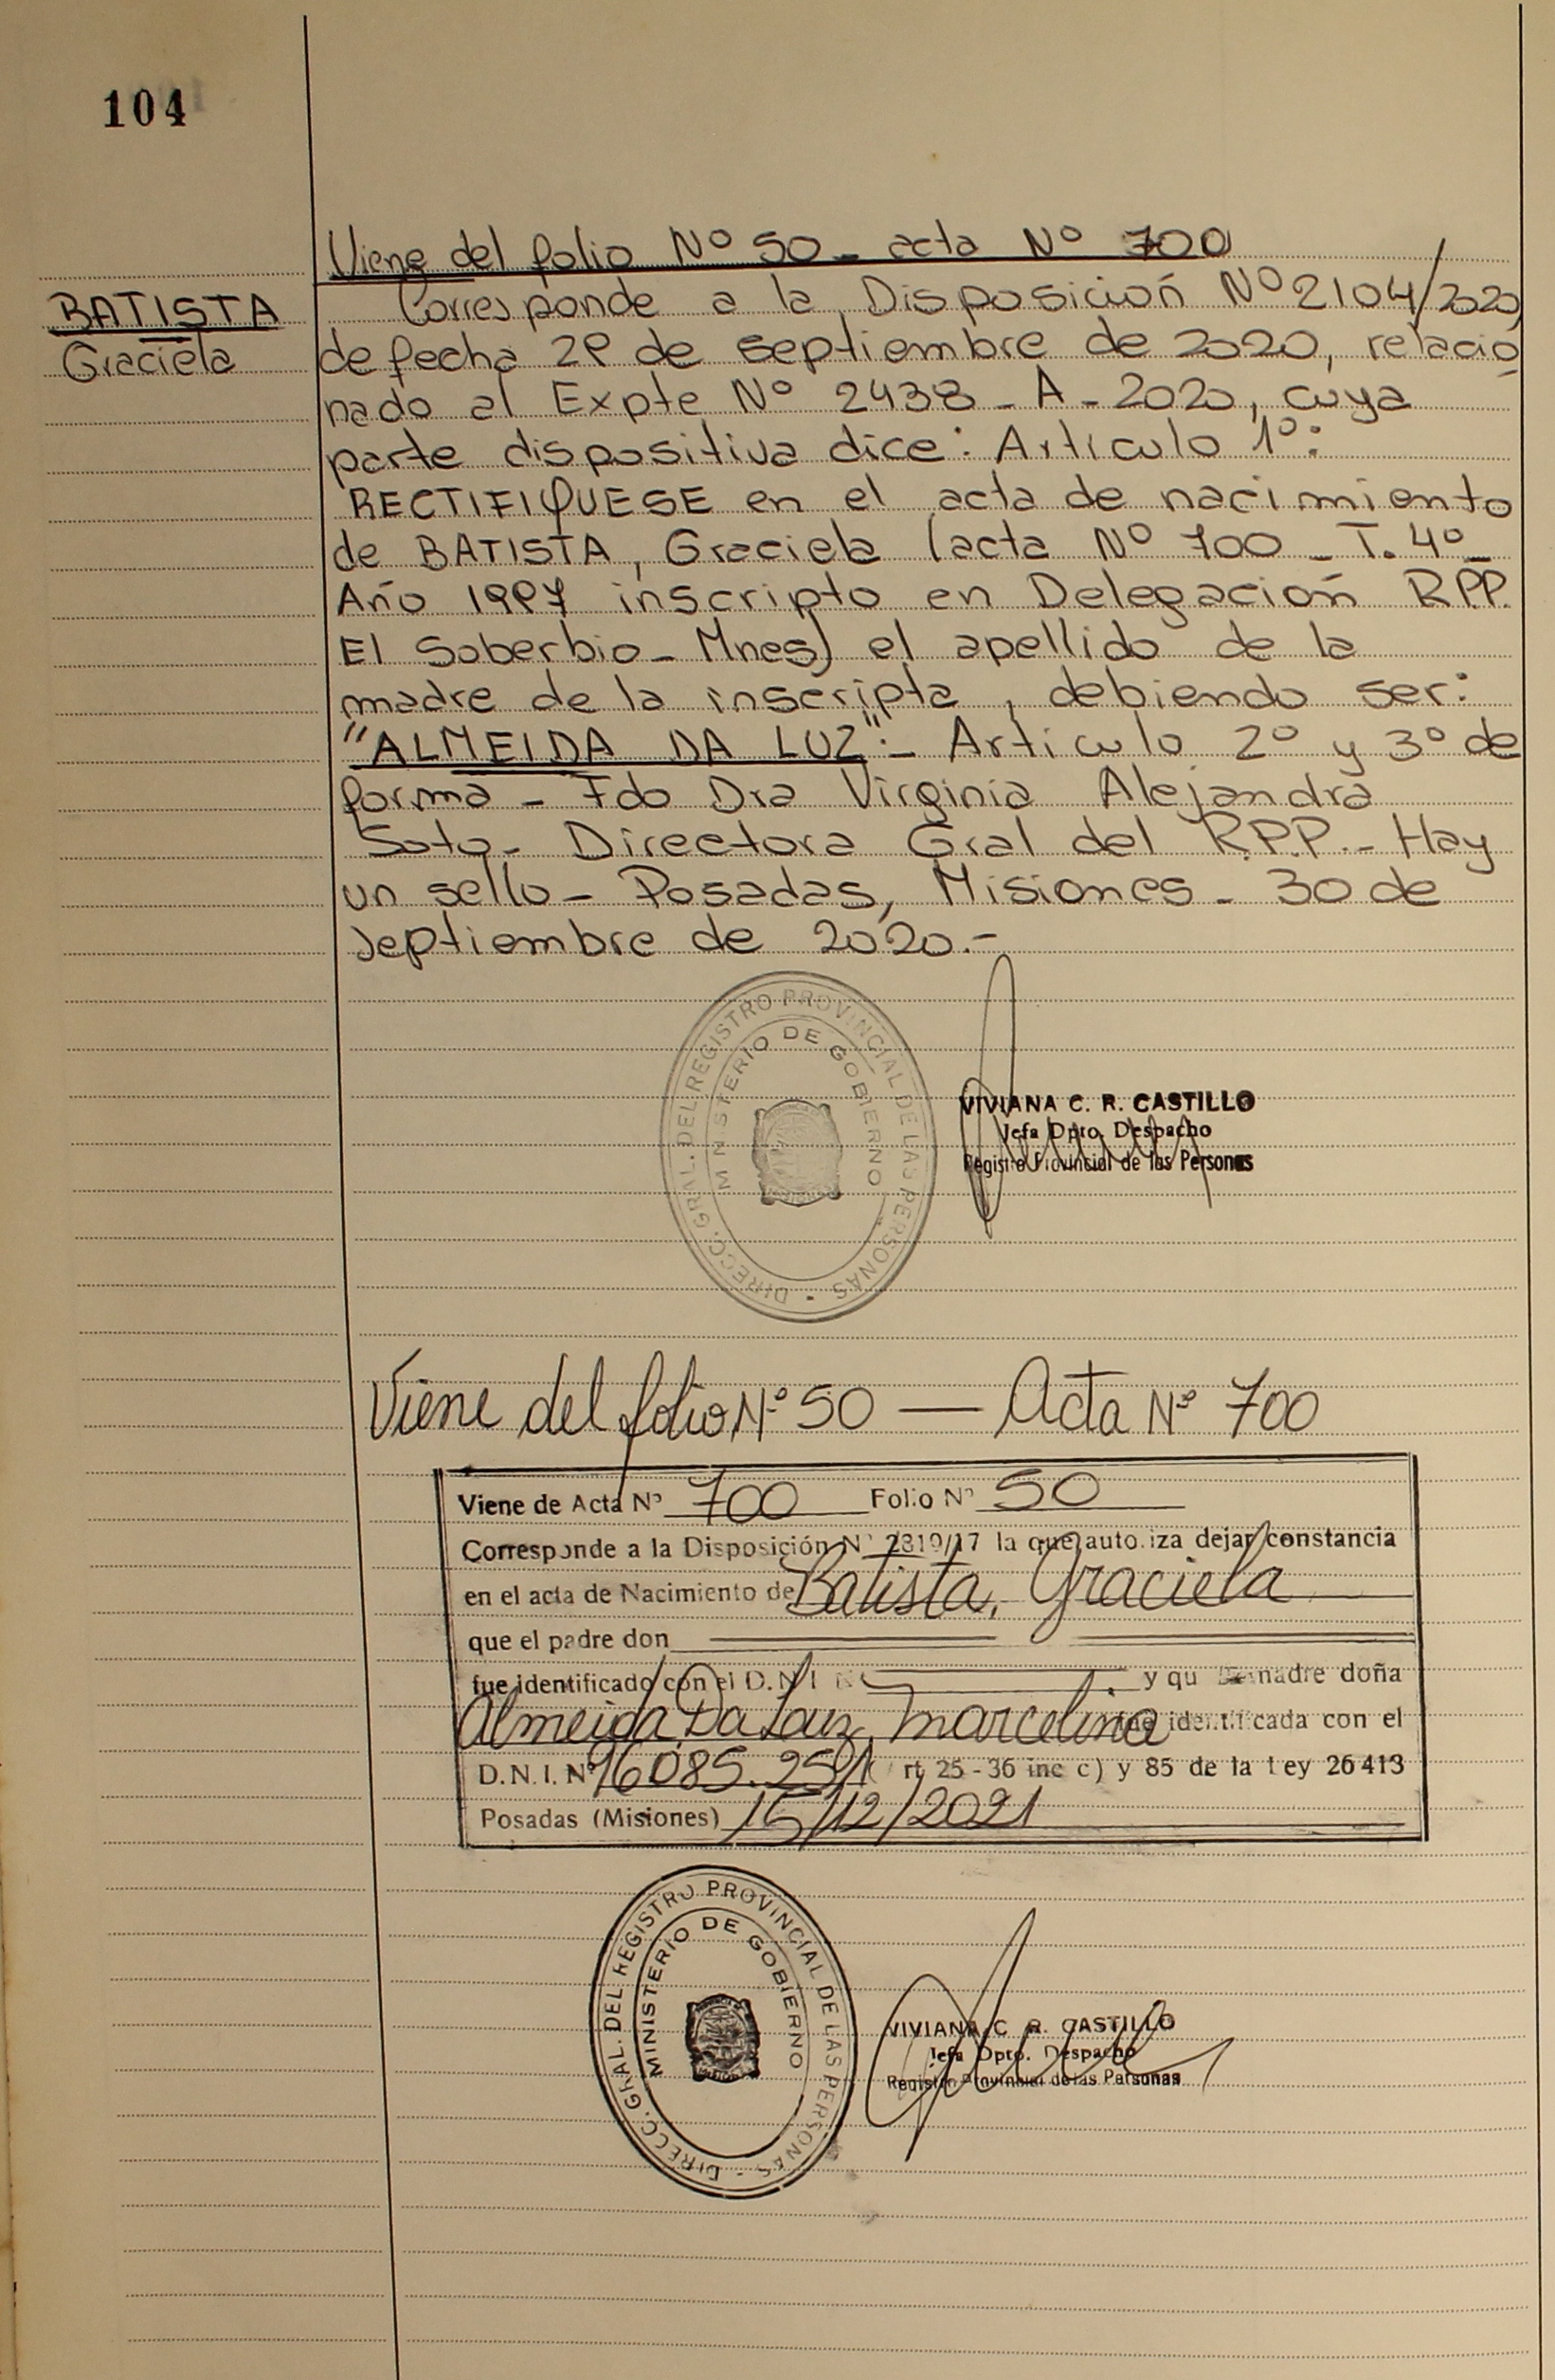 104
Viene del folio Nº 50 - acta Nº 700
BATISTA
Graciela
Corresponde a la Disposición Nº 2104/2020
de fecha 29 de septiembre de 2020, relacio
nado al Expte Nº 2438 - A - 2020, cuya
parte dispositiva dice: Articulo 1º:
RECTIFIQUESE en el acta de nacimiento
de BATISTA, Graciela (acta Nº 700 - T. 4º -
Año 1997 inscripto en Delegación R.P.P.
El Soberbio - Mnes) el apellido de la
madre de la inscripta, debiendo ser:
"ALMEIDA DA LUZ":- Articulo 2º y 3º de
forma - Fdo Dra Virginia Alejandra
Soto - Directora Gral del R.P.P. - Hay
un sello - Posadas, Misiones - 30 de
septiembre de 2020.-
DIRECC. GRAL. DEL REGISTRO PROVINCIAL DE LAS PERSONAS
MINISTERIO DE GOBIERNO
VIVIANA C. R. CASTILLO
Jefa Dpto. Despacho
Registro Provincial de las Personas
Viene del folio Nº 50 — Acta Nº 700
Viene de Acta Nº 700 Folio Nº 50
Corresponde a la Disposición Nº 2819/17 la que autoriza dejar constancia
en el acta de Nacimiento de Batista, Graciela
que el padre don
fue identificado con el D.N.I. Nº y que la madre doña
Almeida Da Luz, Marcelina fue identificada con el
D.N.I. Nº 96085.251 (art. 25 - 36 inc c) y 85 de la Ley 26413
Posadas (Misiones) 15/12/2021
DIRECC. GRAL. DEL REGISTRO PROVINCIAL DE LAS PERSONAS
MINISTERIO DE GOBIERNO
VIVIANA C. R. CASTILLO
Jefa Dpto. Despacho
Registro Provincial de las Personas